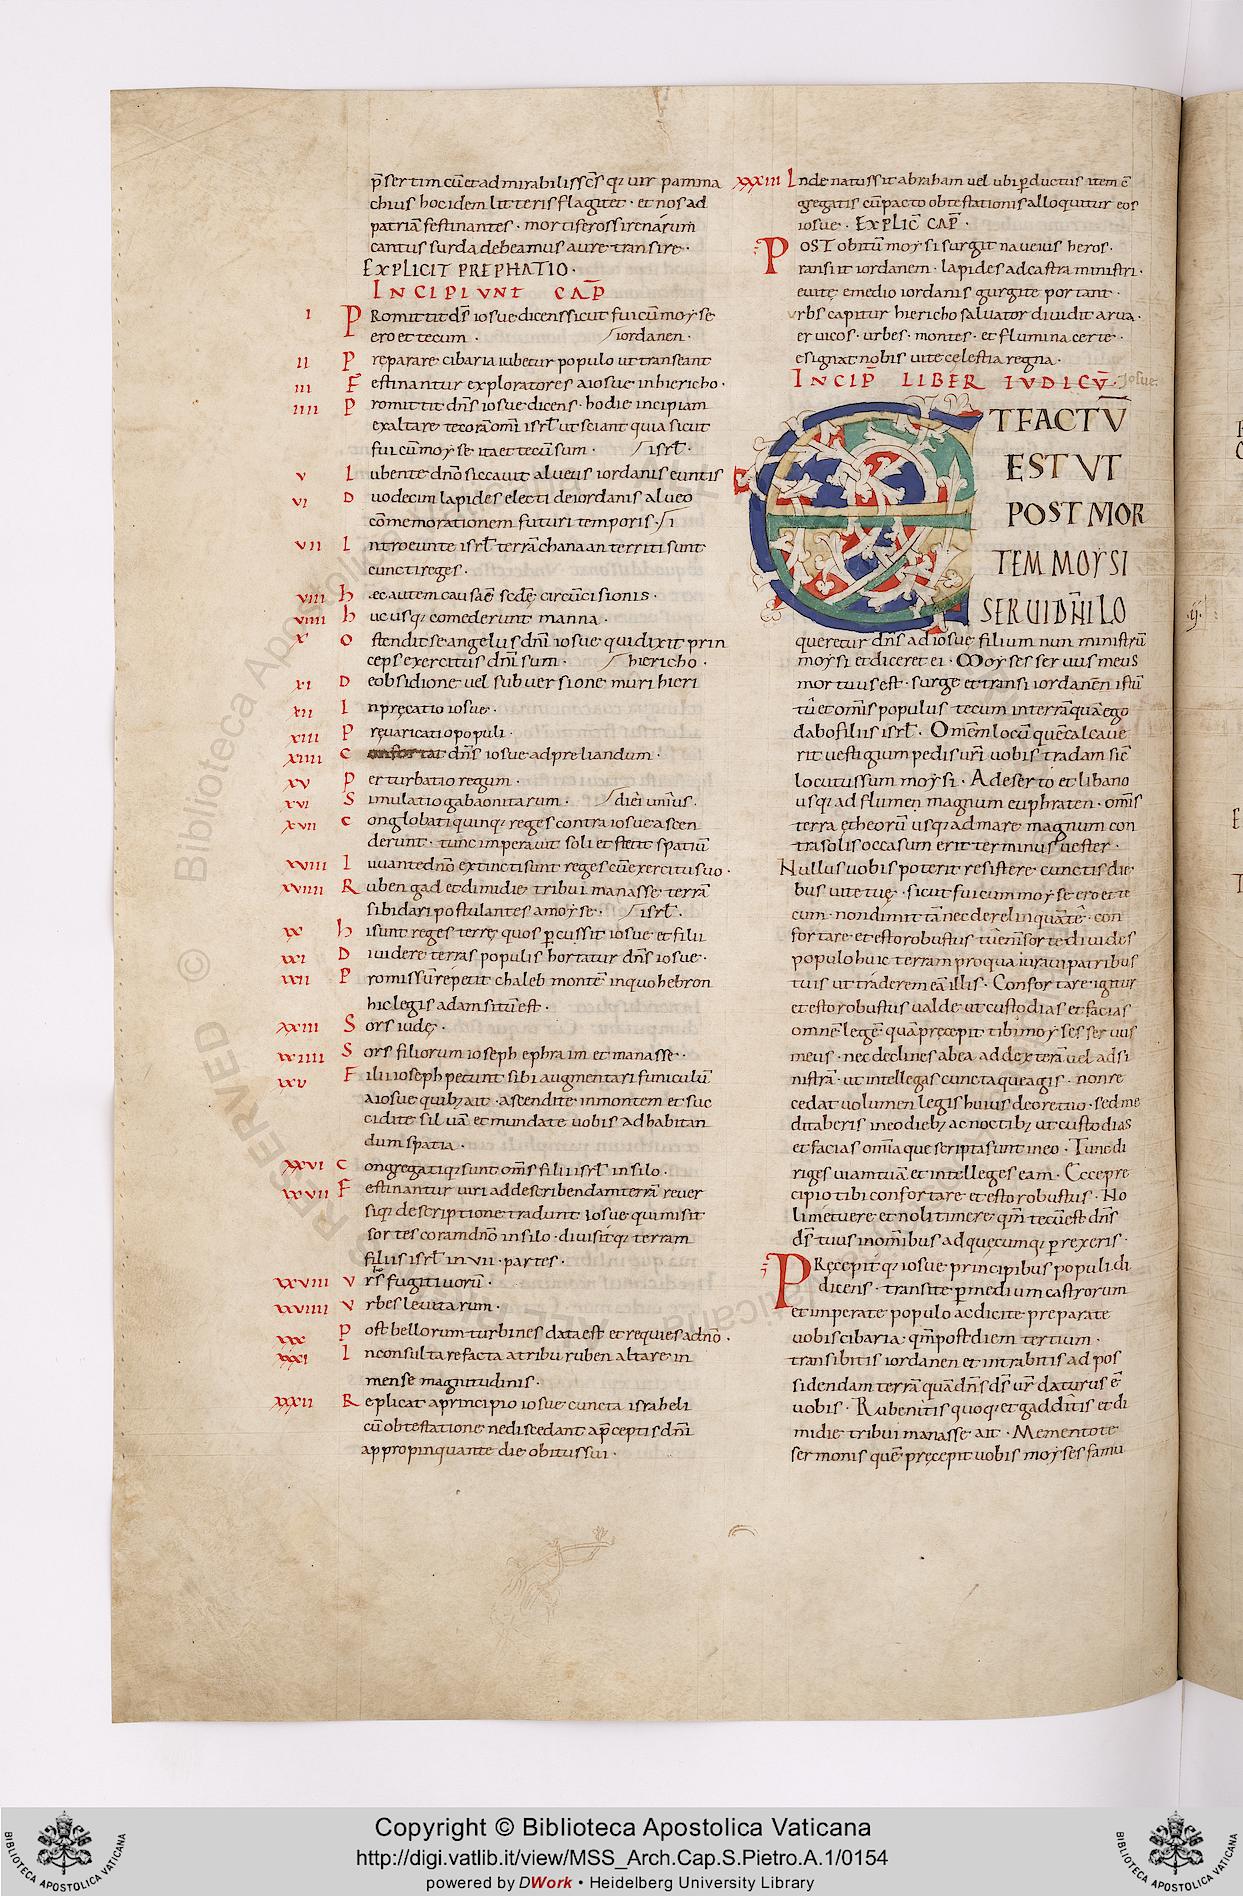 p̄sertim cū et admirabilis sc̄s q; uir pamma
chius hoc idem litteris flagitet · et nos ad
patriā festinantes · mortiferos sirenarum
cantus surda debeamus aure transire ·
EXPLICIT PREPHATIO ·
INCIPIVNT CAP̄
I Promittit dn̄s iosue dicens sicut fui cū moyse
ero et tecum · / iordanen ·
II Preparare cibaria iubetur populo ut transeant
III Festinantur exploratores a iosue in hiericho ·
IIII Promittit dn̄s iosue dicens · hodie incipiam
exaltare te corā omī isrl̄ ut sciant quia sicut
fui cū moyse ita et tecū sum · / isrl̄ ·
V Iubente dn̄o siccauit alueus iordanis euntis
VI Duodecim lapides electi de iordanis alueo
cōmemorationem futuri temporis · / i
VII Introeunte isrl̄ terrā chanaan territi sunt
cuncti reges ·
VIII Hęc autem causa ē scdę circūcisionis ·
VIIII Huc usq; comederunt manna ·
X Ostendit se angelus dn̄i iosue qui dixit prin
ceps exercitus dn̄i sum · / hiericho ·
XI De obsidione uel subuersione muri hieri
XII Inpręcatio iosue ·
XIII Pręuaricatio populi ·
XIIII Confortat dn̄s iosue ad preliandum ·
XV Perturbatio regum ·
XVI Simulatio gabaonitarum · / diēi unius ·
XVII Conglobati quinq; reges contra iosue ascen
derunt · tunc imperauit soli et stetit spatiū
XVIII Iuuante dn̄o extincti sunt reges cū exercitu suo ·
XVIIII Ruben gad et dimidie tribui manasse terrā
sibi dari postulantes a moyse · / isrl̄ ·
XX Hi sunt reges terrę quos p̄cussit iosue et filii
XXI Diuidere terras populis hortatur dn̄s iosue ·
XXII Promissū repetit chaleb montē in quo hebron
hic legis adam situ est ·
XXIII Sors iudę ·
XXIIII Sors filiorum ioseph ephraim et manasse ·
XXV Filii ioseph petunt sibi augmentari funiculū
a iosue quib; ait · ascendite in montem et suc
cidite siluā et mundate uobis ad habitan
dum spatia ·
XXVI Congregatiq; sunt om̄s filii isrl̄ in silo ·
XXVII Festinantur uiri ad describendam terrā reuer
siq; descriptione tradunt iosue qui misit
sortes coram dn̄o in silo · diuisitq; terram
filiis isrl̄ in VII · partes ·
XXVIII Vrbs fugitiuorū ·
XXVIIII Vrbes leuitarum ·
XXX Post bellorum turbines data est et requies a dn̄o ·
XXXI Inconsulta re facta a tribu ruben altare in
mense magnitudinis ·
XXXII Replicat a principio iosue cuncta israheli
cū obtestatione ne discedant a p̄ceptis dn̄i
appropinquante die obitus sui ·
XXXIII Inde natus sit abraham uel ubi p̄ductus item c̄
gregatis cū pacto obtestationis alloquitur eos
iosue · EXPLIC̄ CAP̄ ·
POST obitū moysi surgit naueius heros ·
ransiit iordanem · lapides ad castra ministri ·
euitę e medio iordanis gurgite portant ·
vrbs capitur hiericho saluator diuidit arua ·
er uicos · urbes · montes · et flumina certe ·
esignat nobis uite celestia regna ·
INCIP̄ LIBER IVDICV̄ · Josue ·
ET FACTV̄
EST VT
POST MOR
TEM MOYSI
SERVI DN̄I LO
queretur dn̄s ad iosue filium nun ministrū
moysi et diceret ei · Moyses seruus meus
mortuus est · surge et transi iordanen istū
tū et om̄is populus tecum in terrā quā ego
dabo filiis isrl̄ · Omēm locū quē calcaue
rit uestigium pedis uri uobis tradam sic̄
locutus sum moysi · A deserto et libano
usq; ad flumen magnum euphraten · om̄is
terra etheorū usq; ad mare magnum con
tra solis occasum erit terminus uester ·
Nullus uobis poterit resistere cunctis die
bus uite tuę · sicut fui cum moyse ero et te
cum · non dimittā nec derelinquā te · con
fortare et esto robustus tu enī sorte diuides
populo huic terram pro qua iuraui patribus
tuis ut traderem eā illis · Confortare igitur
et esto robustus ualde ut custodias et facias
omnē legē quā pręcepit tibi moyses seruus
meus · nec declines ab ea ad dexterā uel ad si
nistrā · ut intellegas cuncta que agis · non re
cedat uolumen legis huius de ore tuo · sed me
ditaberis in eo dieb; ac noctib; ut custodias
et facias om̄ia que scripta sunt in eo · Tunc di
riges uiam tuā et intelleges eam · Ecce pre
cipio tibi confortare et esto robustus · No
li metuere et noli timere qm̄ tecū est dn̄s
ds̄ tuus in om̄ibus ad quęcumq; p̄rexeris ·
PRęcepitq; iosue principibus populi di
dicens · transite p̄ medium castrorum
et imperate populo ac dicite preparate
uobis cibaria · qm̄ post diem tertium ·
transibitis iordanen et intrabitis ad pos
sidendam terrā quā dn̄s ds̄ ur̄ daturus ē
uobis · Rubenitis quoq; et gadditis et di
midie tribui manasse ait · Mementote
sermonis quē pręcepit uobis moyses famu
Copyright © Biblioteca Apostolica Vaticana
http://digi.vatlib.it/view/MSS_Arch.Cap.S.Pietro.A.1/0154
powered by DWork • Heidelberg University Library